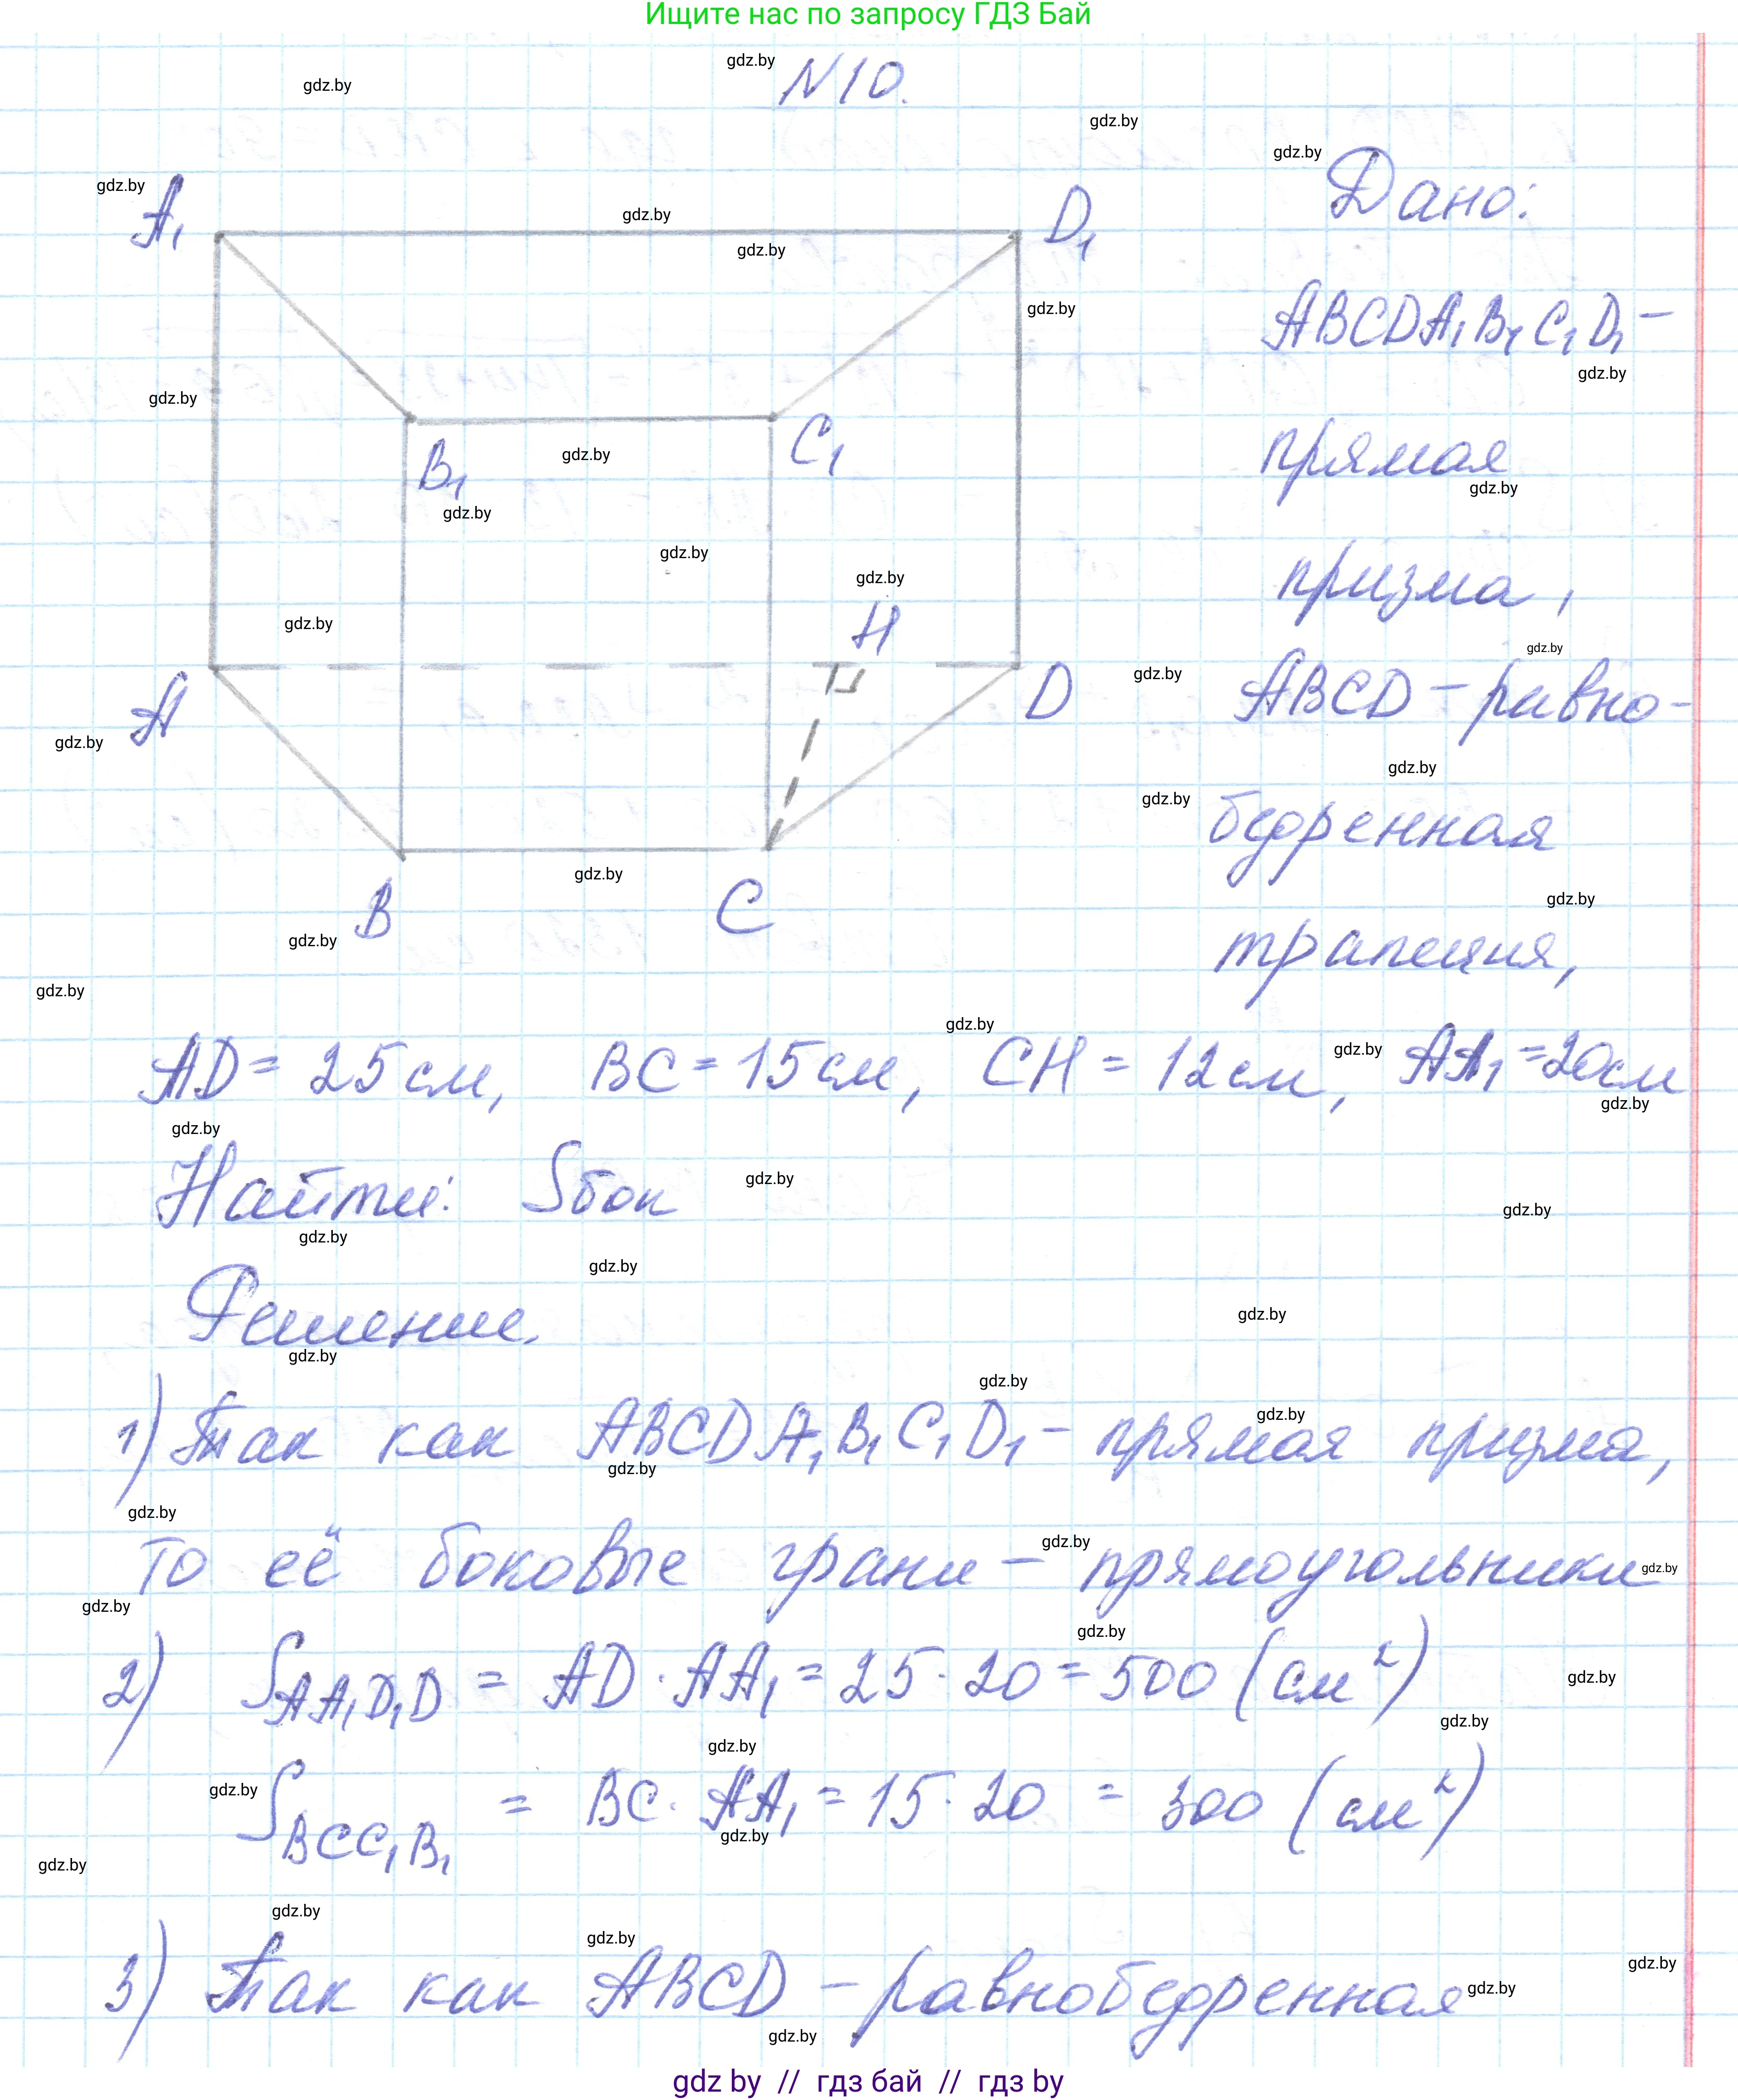 Ищите нас по запросу ГДЗ Бай
N10.
A₁
D₁
B₁
C₁
H
A
D
B
C
Дано:
ABCDA₁B₁C₁D₁ –
прямая
призма,
ABCD – равно-
бедренная
трапеция,
AD = 25 см, BC = 15 см, CH = 12 см, AA₁ = 20 см
Найти: Sбок
Решение.
1) Так как ABCDA₁B₁C₁D₁ – прямая призма,
то её боковые грани – прямоугольники
2) S_AA₁D₁D = AD · AA₁ = 25 · 20 = 500 (см²)
S_BCC₁B₁ = BC · AA₁ = 15 · 20 = 300 (см²)
3) Так как ABCD – равнобедренная
gdz by // гдз бай // гдз by